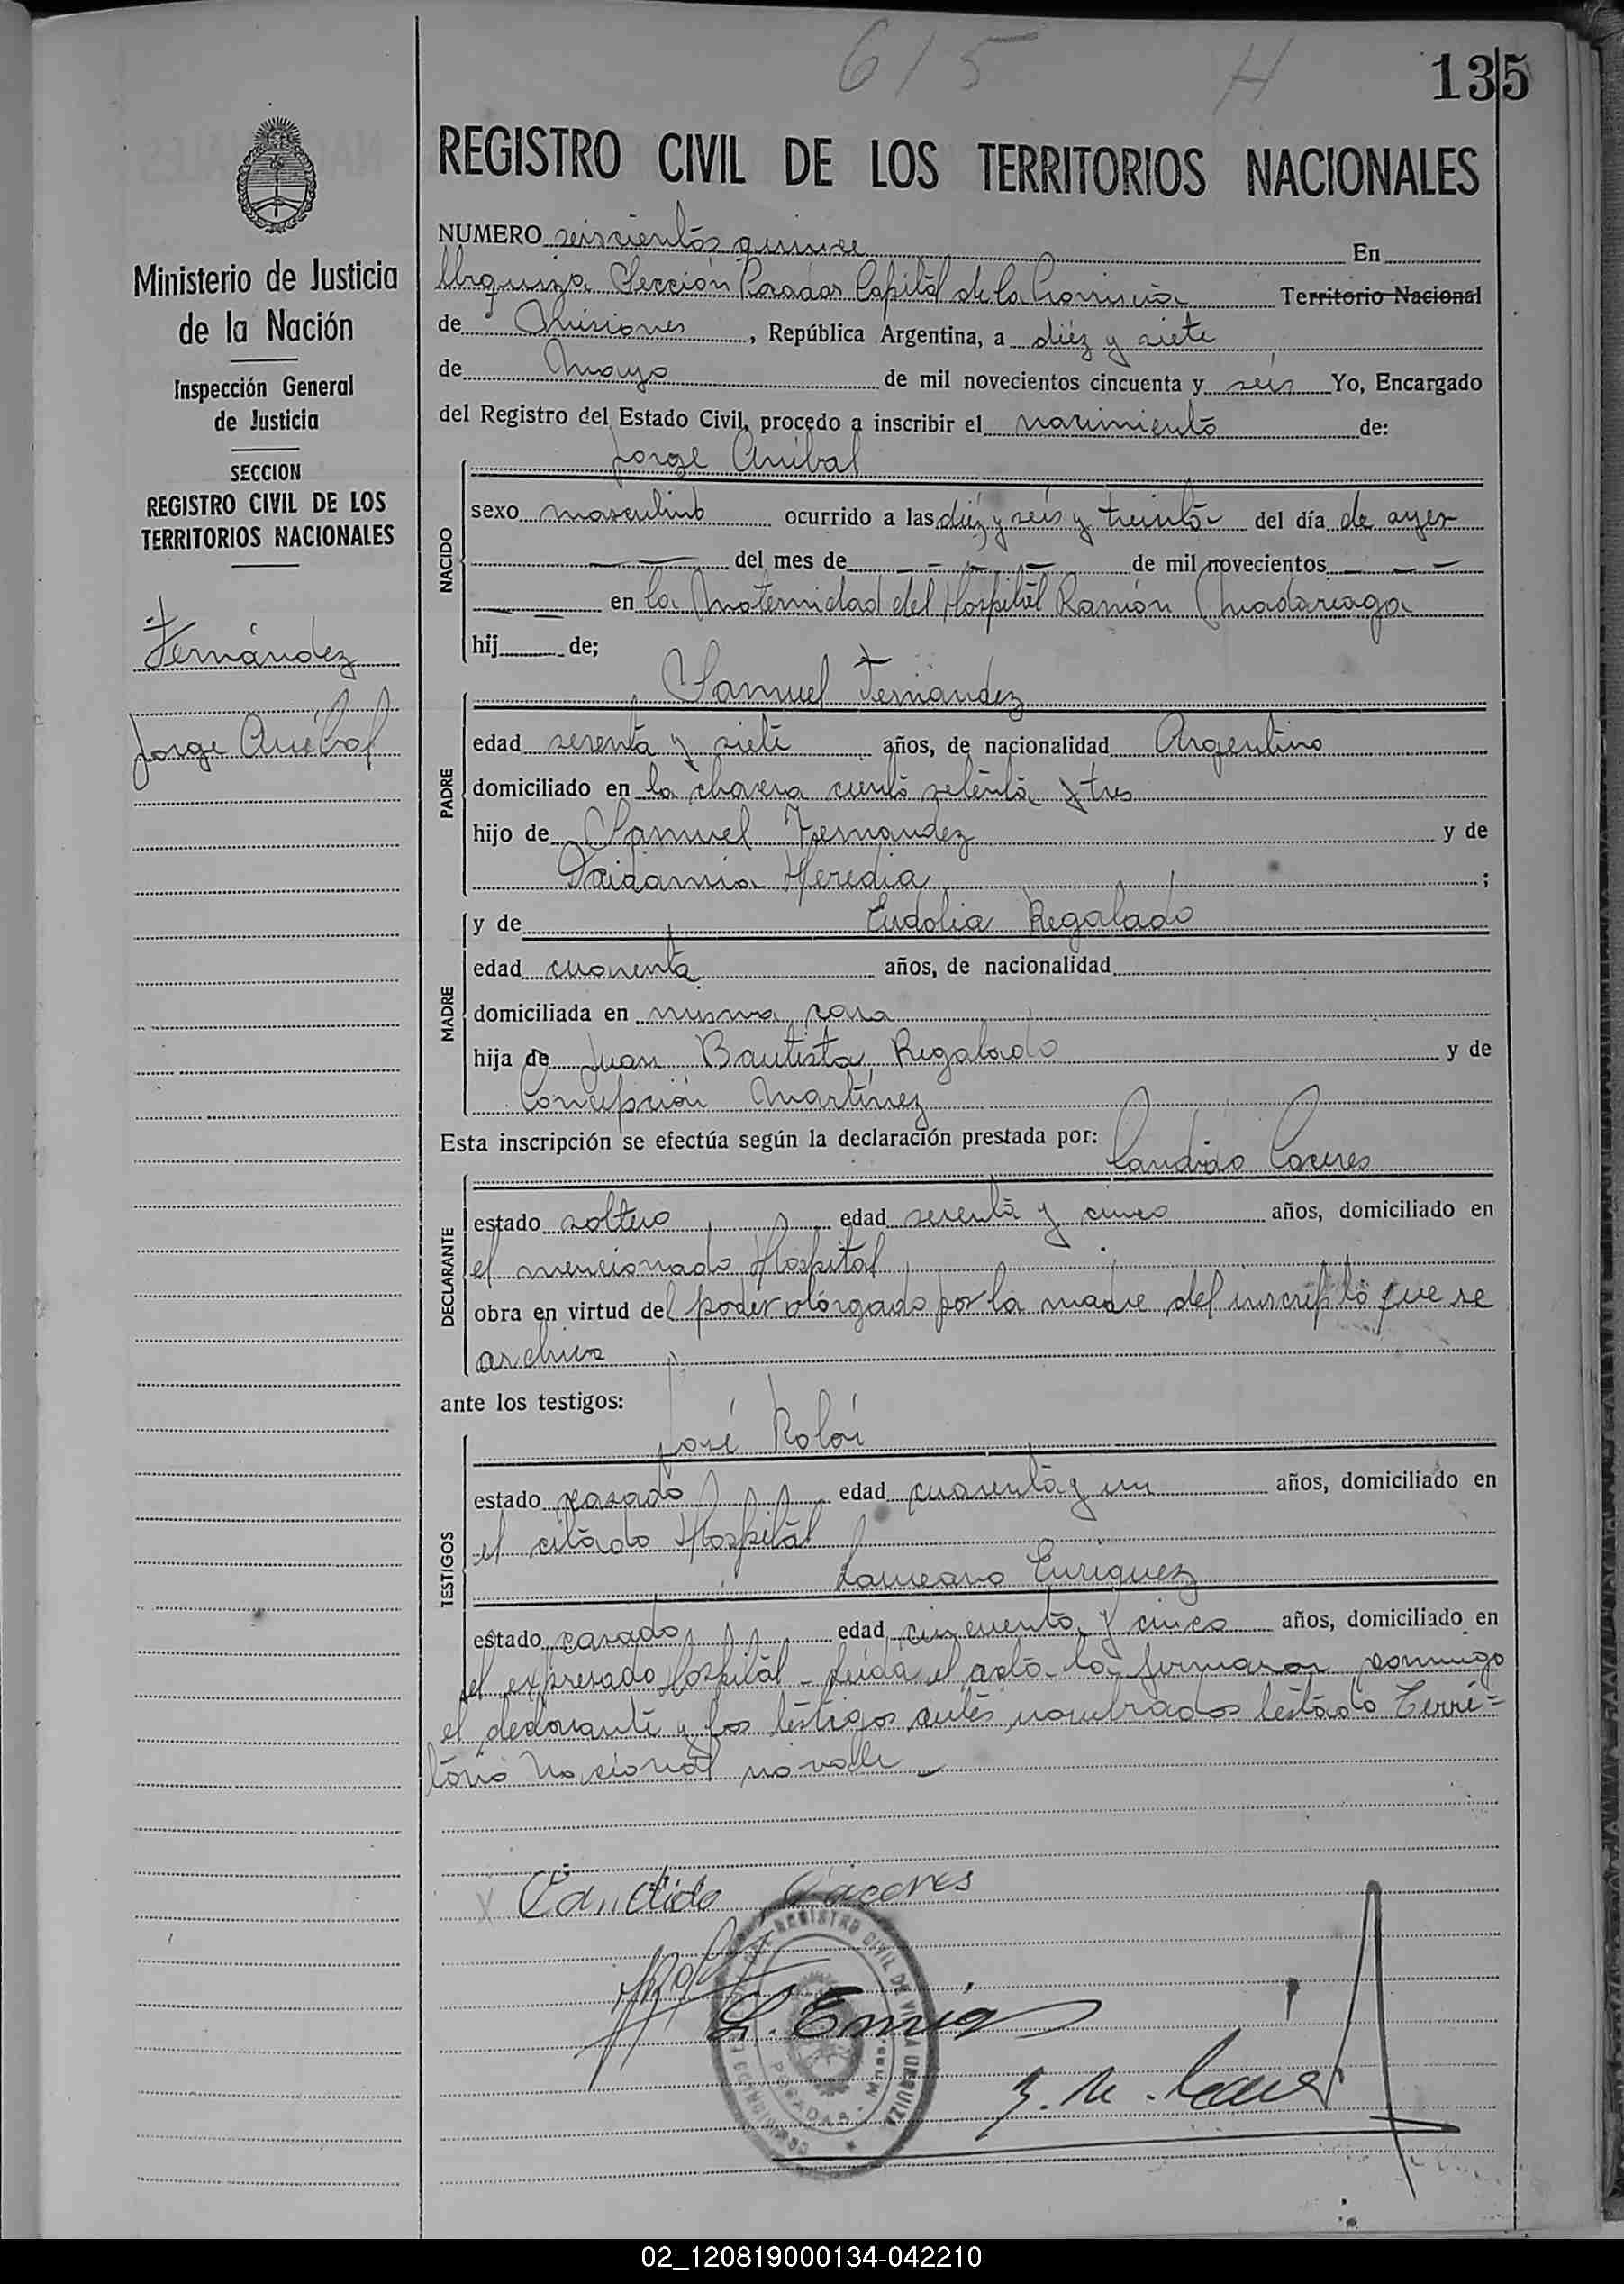 615 H 135
REGISTRO CIVIL DE LOS TERRITORIOS NACIONALES
Ministerio de Justicia
de la Nación
Inspección General
de Justicia
SECCION
REGISTRO CIVIL DE LOS
TERRITORIOS NACIONALES
Fernández
Jorge Aníbal
NUMERO seiscientos quince En
Urquiza Sección Posadas Capital de la Provincia Territorio Nacional
de Misiones, República Argentina, a diéz y siete
de Mayo de mil novecientos cincuenta y seis Yo, Encargado
del Registro del Estado Civil, procedo a inscribir el nacimiento de:
Jorge Aníbal
NACIDO
sexo masculino ocurrido a las diéz y seis y treinta del día de ayer
— — del mes de — — — de mil novecientos — — —
— — en la Maternidad del Hospital Ramón Madariaga
hij de;
Samuel Fernández
PADRE
edad sesenta y siete años, de nacionalidad Argentino
domiciliado en la chacra ciento setenta y tres
hijo de Samuel Fernandez y de
Heredia ;
y de Eudolia Regalado
MADRE
edad cuarenta años, de nacionalidad
domiciliada en misma casa
hija de Juan Bautista Regalado y de
Concepción Martínez
Esta inscripción se efectúa según la declaración prestada por:
Candido Caceres
DECLARANTE
estado soltero edad sesenta y cinco años, domiciliado en
el mencionado Hospital
obra en virtud del poder otorgado por la madre del inscripto que se
archiva
ante los testigos:
José Rolón
TESTIGOS
estado casado edad cuarenta y un años, domiciliado en
el citado Hospital
Laureano Enriquez
estado casado edad cincuenta y cinco años, domiciliado en
el expresado Hospital - Leída el acta la firmaron conmigo
el declarante y los testigos antes nombrados testado Terri=
torio Nacional no vale –
Candido Caceres
REGISTRO CIVIL DE VILLA URQUIZA
POSADAS - Mnes.
L. Enriq
02_120819000134-042210